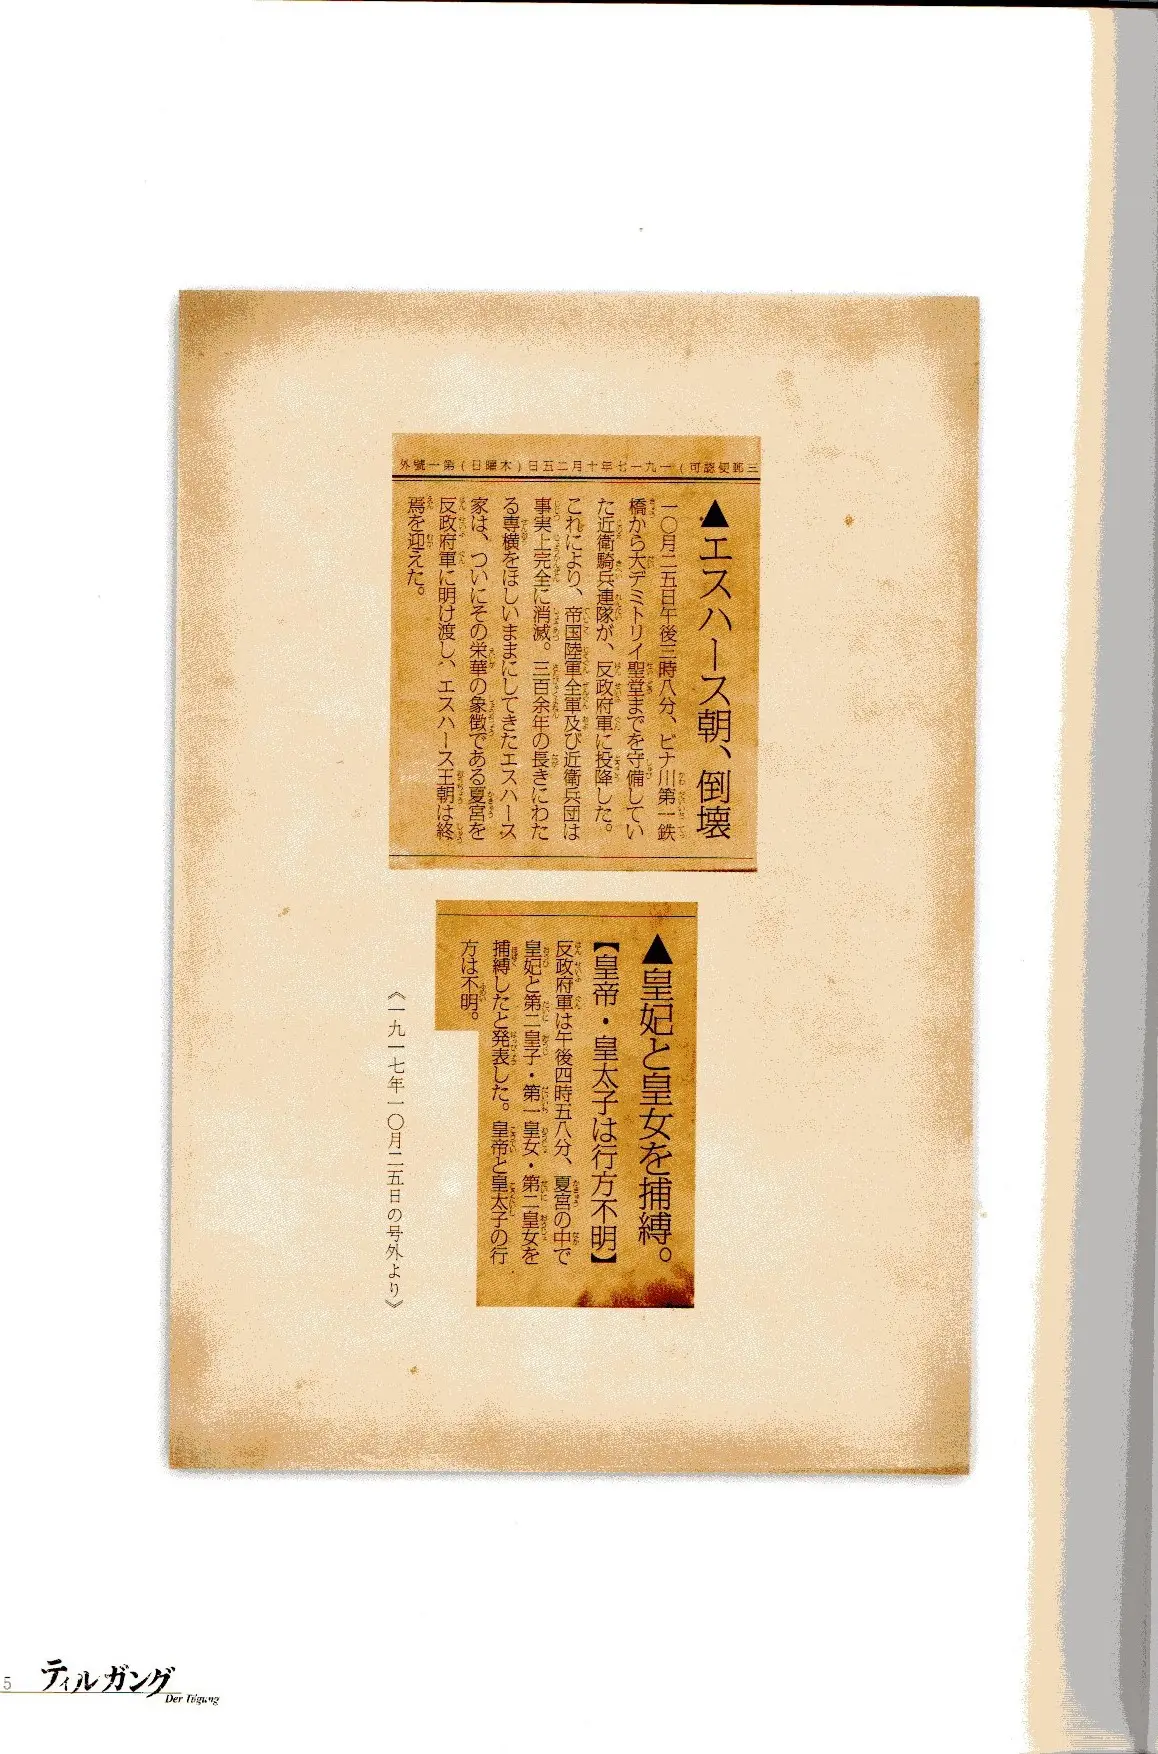 三郵便認可)一九一七年十月二五日(木曜日)第一號外
▲エスハース朝、倒壊
一〇月二五日午後三時八分、ビナ川第一鉄
橋から大デミトリイ聖堂までを守備してい
た近衛騎兵連隊が、反政府軍に投降した。
これにより、帝国陸軍全軍及び近衛兵団は
事実上完全に消滅。三百余年の長きにわた
る専横をほしいままにしてきたエスハース
家は、ついにその栄華の象徴である夏宮を
反政府軍に明け渡し、エスハース王朝は終
焉を迎えた。
▲皇妃と皇女を捕縛。
【皇帝・皇太子は行方不明】
反政府軍は午後四時五八分、夏宮の中で
皇妃と第二皇子・第一皇女・第二皇女を
捕縛したと発表した。皇帝と皇太子の行
方は不明。
《一九一七年一〇月二五日の号外より》
5
ティルガング
Der Tilgung